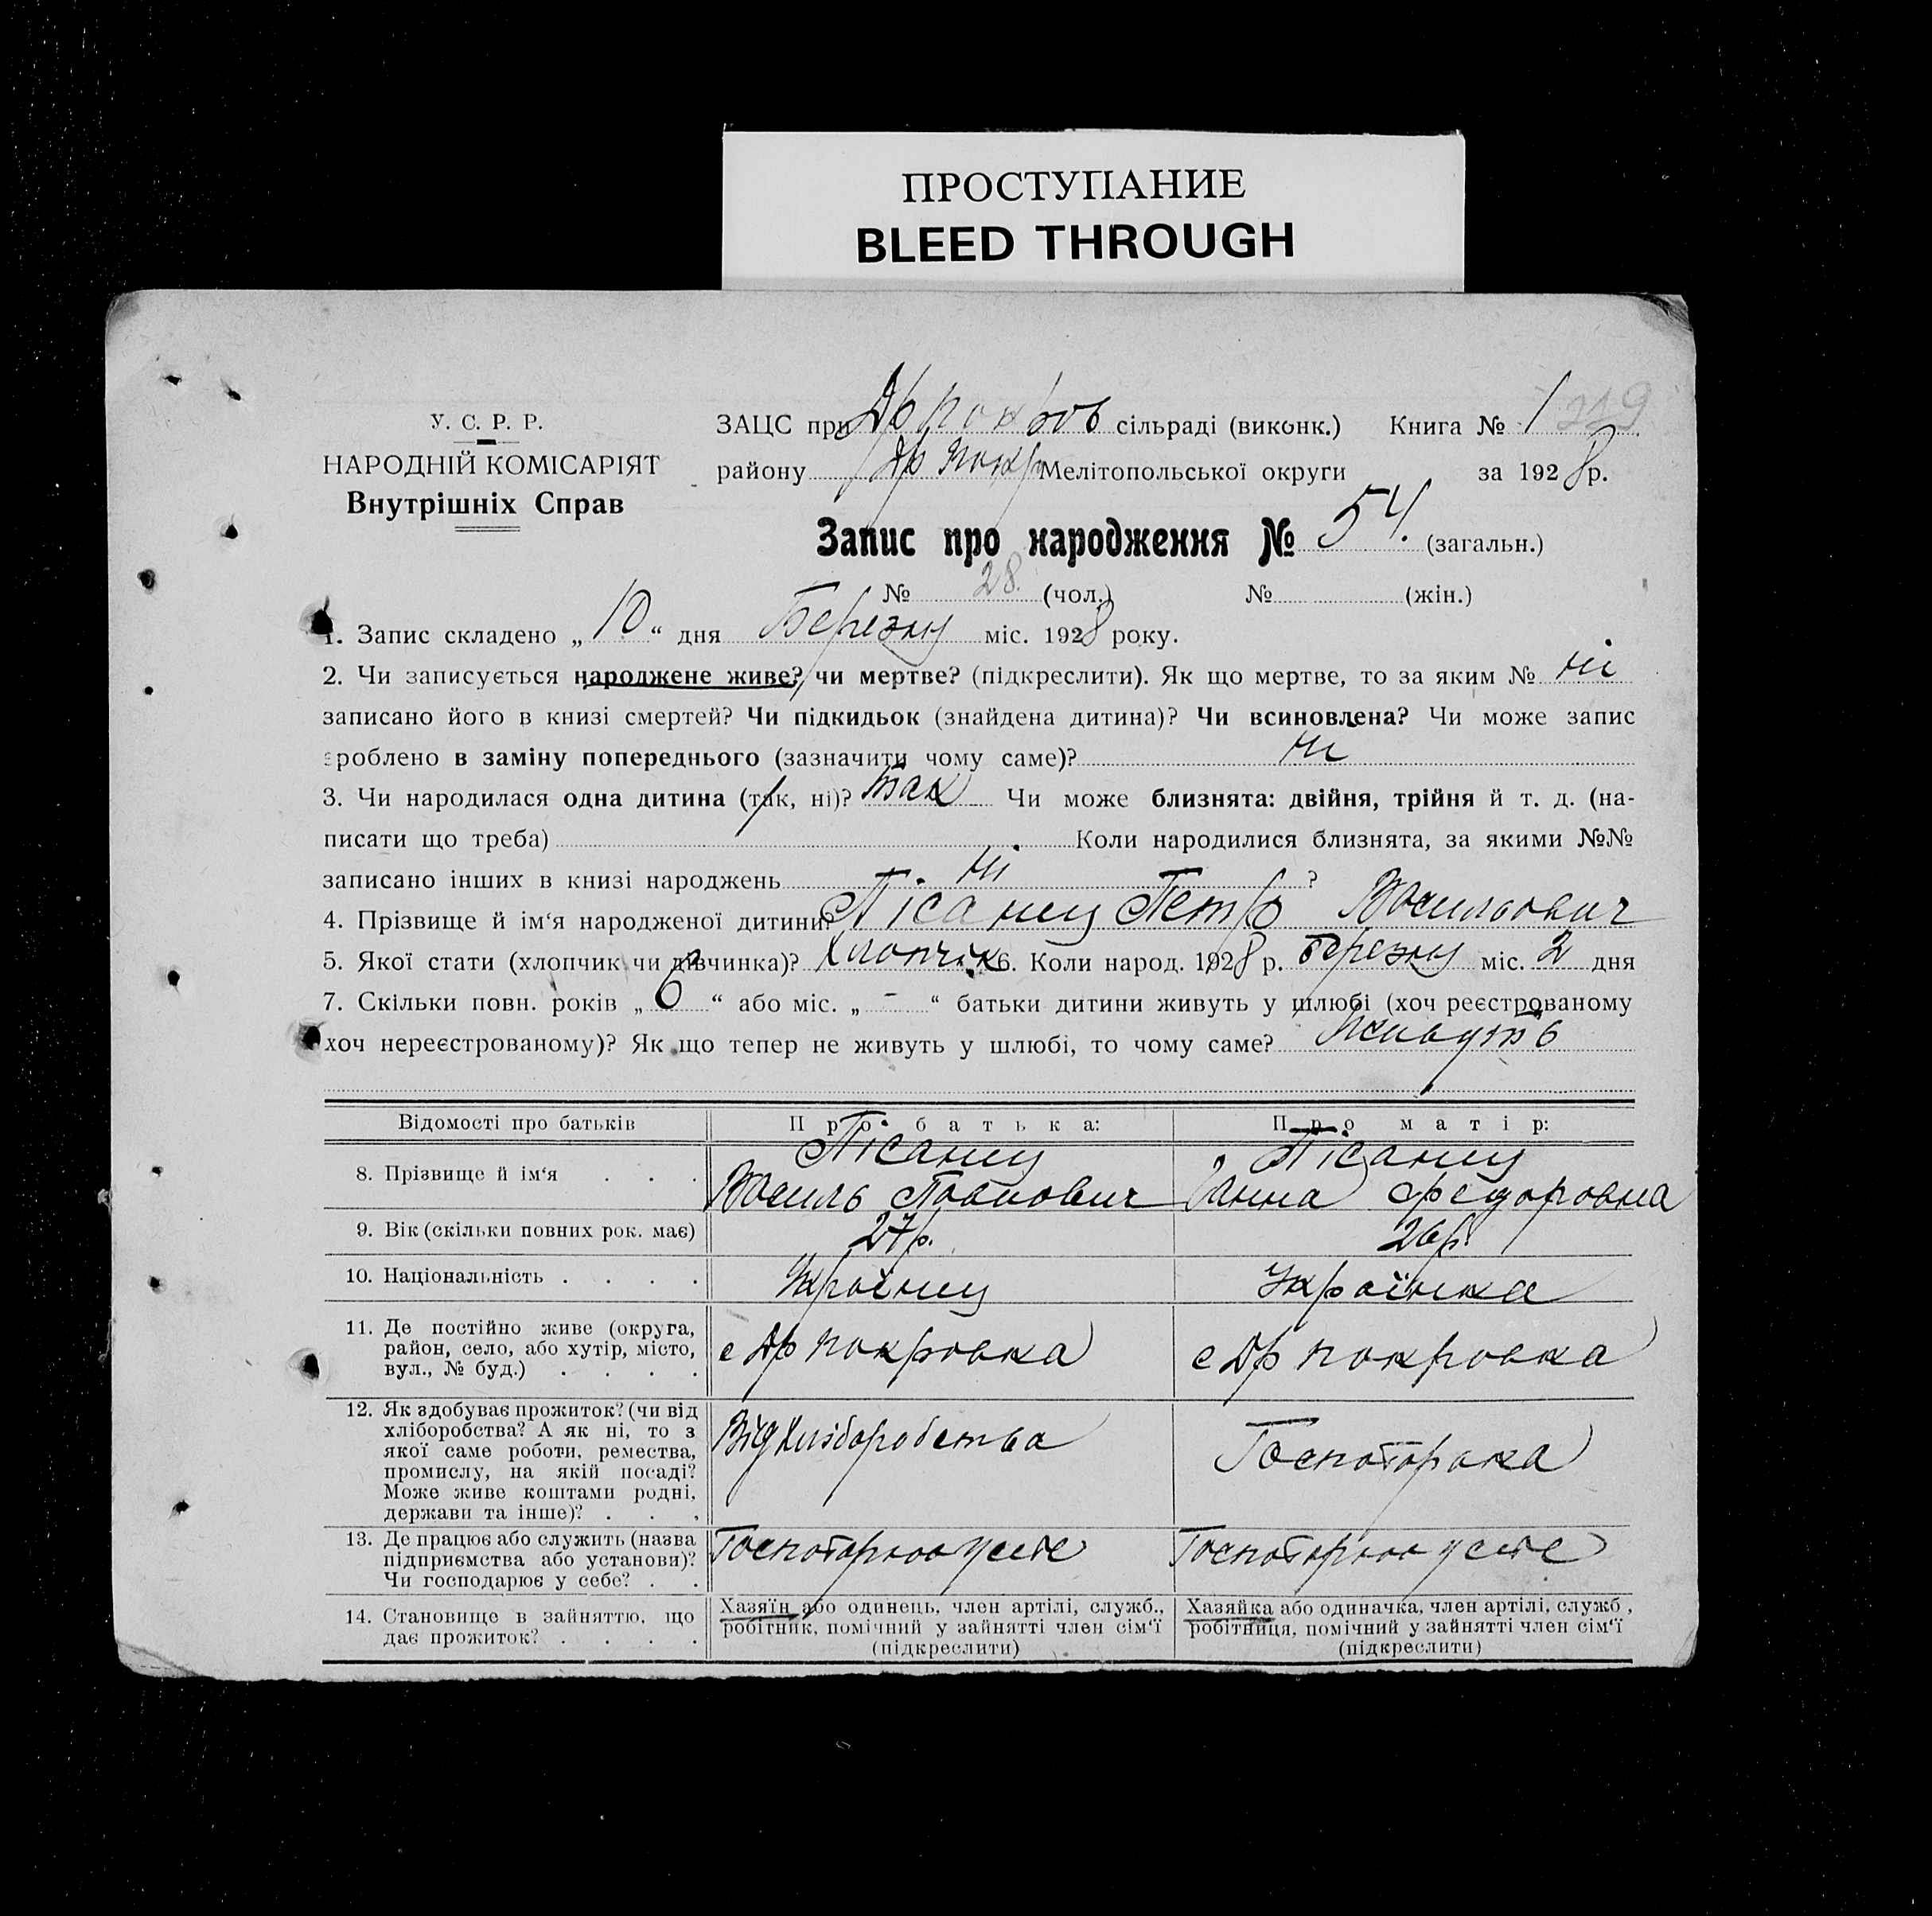 ПРОСТУПАНИЕ
BLEED THROUGH
У. С. Р. Р.
НАРОДНІЙ КОМІСАРІЯТ
Внутрішніх Справ
ЗАЦС при Др покров сільраді (виконк.) Книга № 1 219
району Др Покр Мелітопольської округи за 1928 р.
Запис про народження № 54. (загальн.)
№ 28. (чол.) № (жін.)
1. Запис складено „ 10 “ дня Березня міс. 1928 року.
2. Чи записується народжене живе? чи мертве? (підкреслити). Як що мертве, то за яким № ні
записано його в книзі смертей? Чи підкидьок (знайдена дитина)? Чи всиновлена? Чи може запис
зроблено в заміну попереднього (зазначити чому саме)? ні
3. Чи народилася одна дитина (так, ні)? так Чи може близнята: двійня, трійня й т. д. (на-
писати що треба) Коли народилися близнята, за якими №№
записано інших в книзі народжень ні ?
4. Прізвище й ім‘я народженої дитини? Пісанец Петро Васильович
5. Якої стати (хлопчик чи дівчинка)? Хлопчік 6. Коли народ. 1928 р. березня міс. 2 дня
7. Скільки повн. років „ 6 “ або міс. „ - “ батьки дитини живуть у шлюбі (хоч реєстрованому
хоч нереєстрованому)? Як що тепер не живуть у шлюбі, то чому саме? Живуть
Відомості про батьків Про батька: Про матір:
8. Прізвище й ім‘я . . . Пісанец Пісанец
Василь Ганна Федоровна
9. Вік (скільки повних рок. має) 27р. 26р.
10. Національність . . . . Українец Українка
11. Де постійно живе (округа,
район, село, або хутір, місто,
вул., № буд.) . . . .
с Др покровка с Др покровка
12. Як здобуває прожиток? (чи від
хліборобства? А як ні, то з
якої саме роботи, ремества,
промислу, на якій посаді?
Може живе коштами родні,
держави та інше)? . . .
Від Хліборобства
13. Де працює або служить (назва
підприємства або установи)?
Чи господарює у себе? . .
14. Становище в зайняттю, що
дає прожиток? . . . .
Хазяїн або одинець, член артілі, служб.,
робітник, помічний у зайнятті член сім‘ї
(підкреслити)
Хазяйка або одиначка, член артілі, служб ,
робітниця, помічний у зайнятті член сім‘ї
(підкреслити)